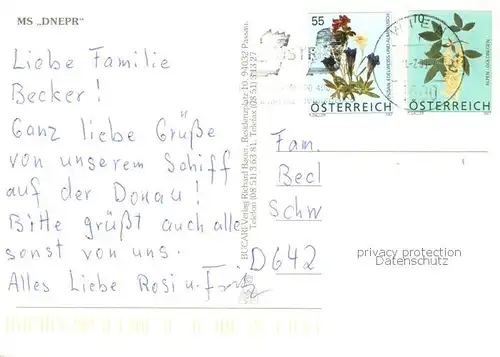 MS „DNEPR"
Liebe Familie
Becker!
Ganz liebe Grüße
von unserem Schiff
auf der Donau!
Bitte grüßt auch alle
sonst von uns.
Alles Liebe Rosi u. Fritz
BUCARI-Verlag Richard Bauer, Residenzplatz 10, 94032 Passau,
Telefon (08 51) 3 63 81, Telefax (08 51) 3 13 27
55
ÖSTERREICH
10
ÖSTERREICH
WIEN
Fam.
Becl
Schw
D642
privacy protection
Datenschutz